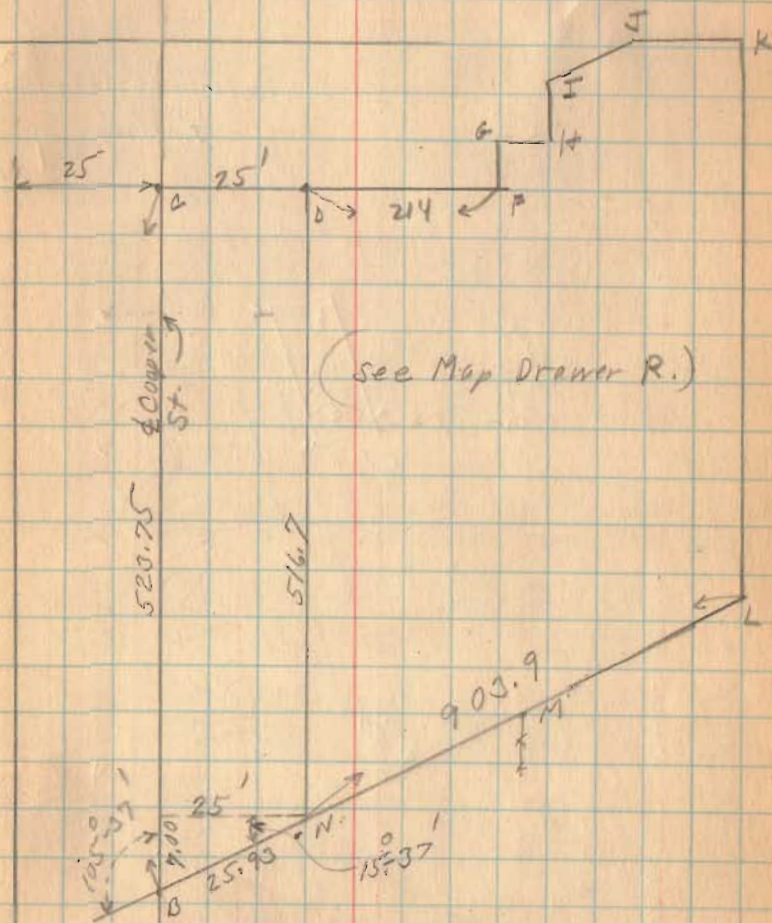 J
K
I
G
H
25
25'
C
D
214
F
¢ Cooper
St.
(See Map Drawer R.)
523.75
516.7
L
903.9
M
25'
N.
105°-37'
7.00
25.93
15°-37'
B